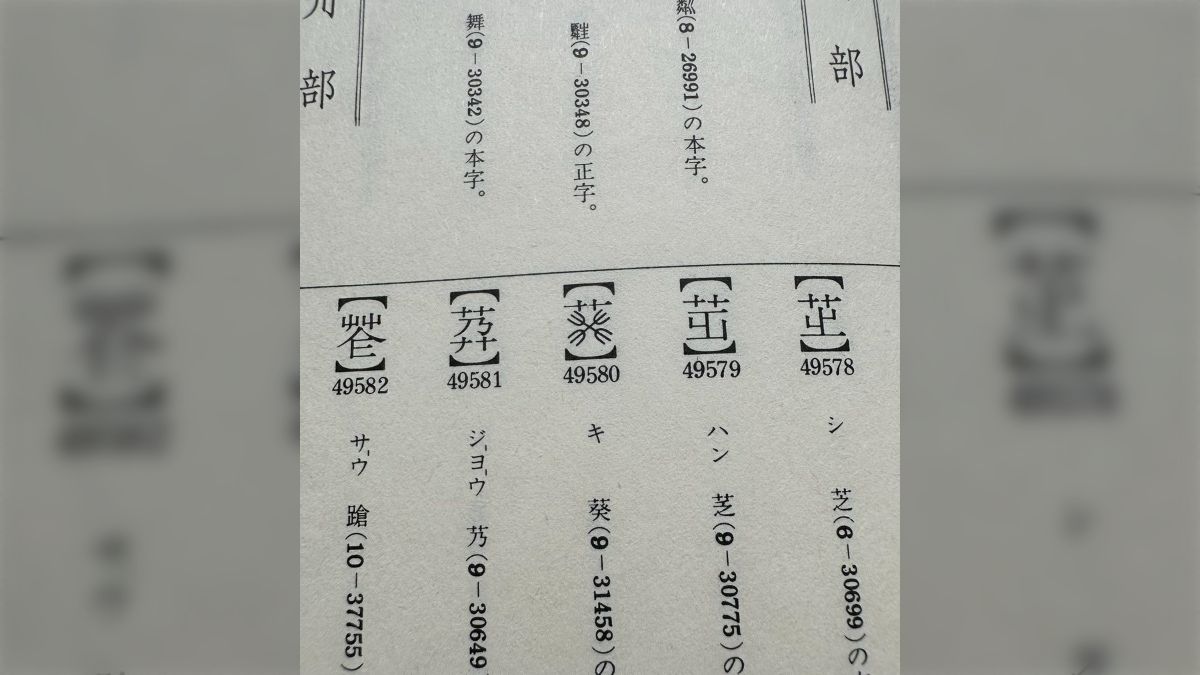 部
(8-26991)の本字。
(9-30348)の正字。
舞(9-30342)の本字。
部
49578 シ 芝(6-30699)の
49579 ハン (9-30775)の
49580 キ 葵(9-31458)の
49581 ジョウ 艿(9-30649
49582 サウ 蹌(10-37755)